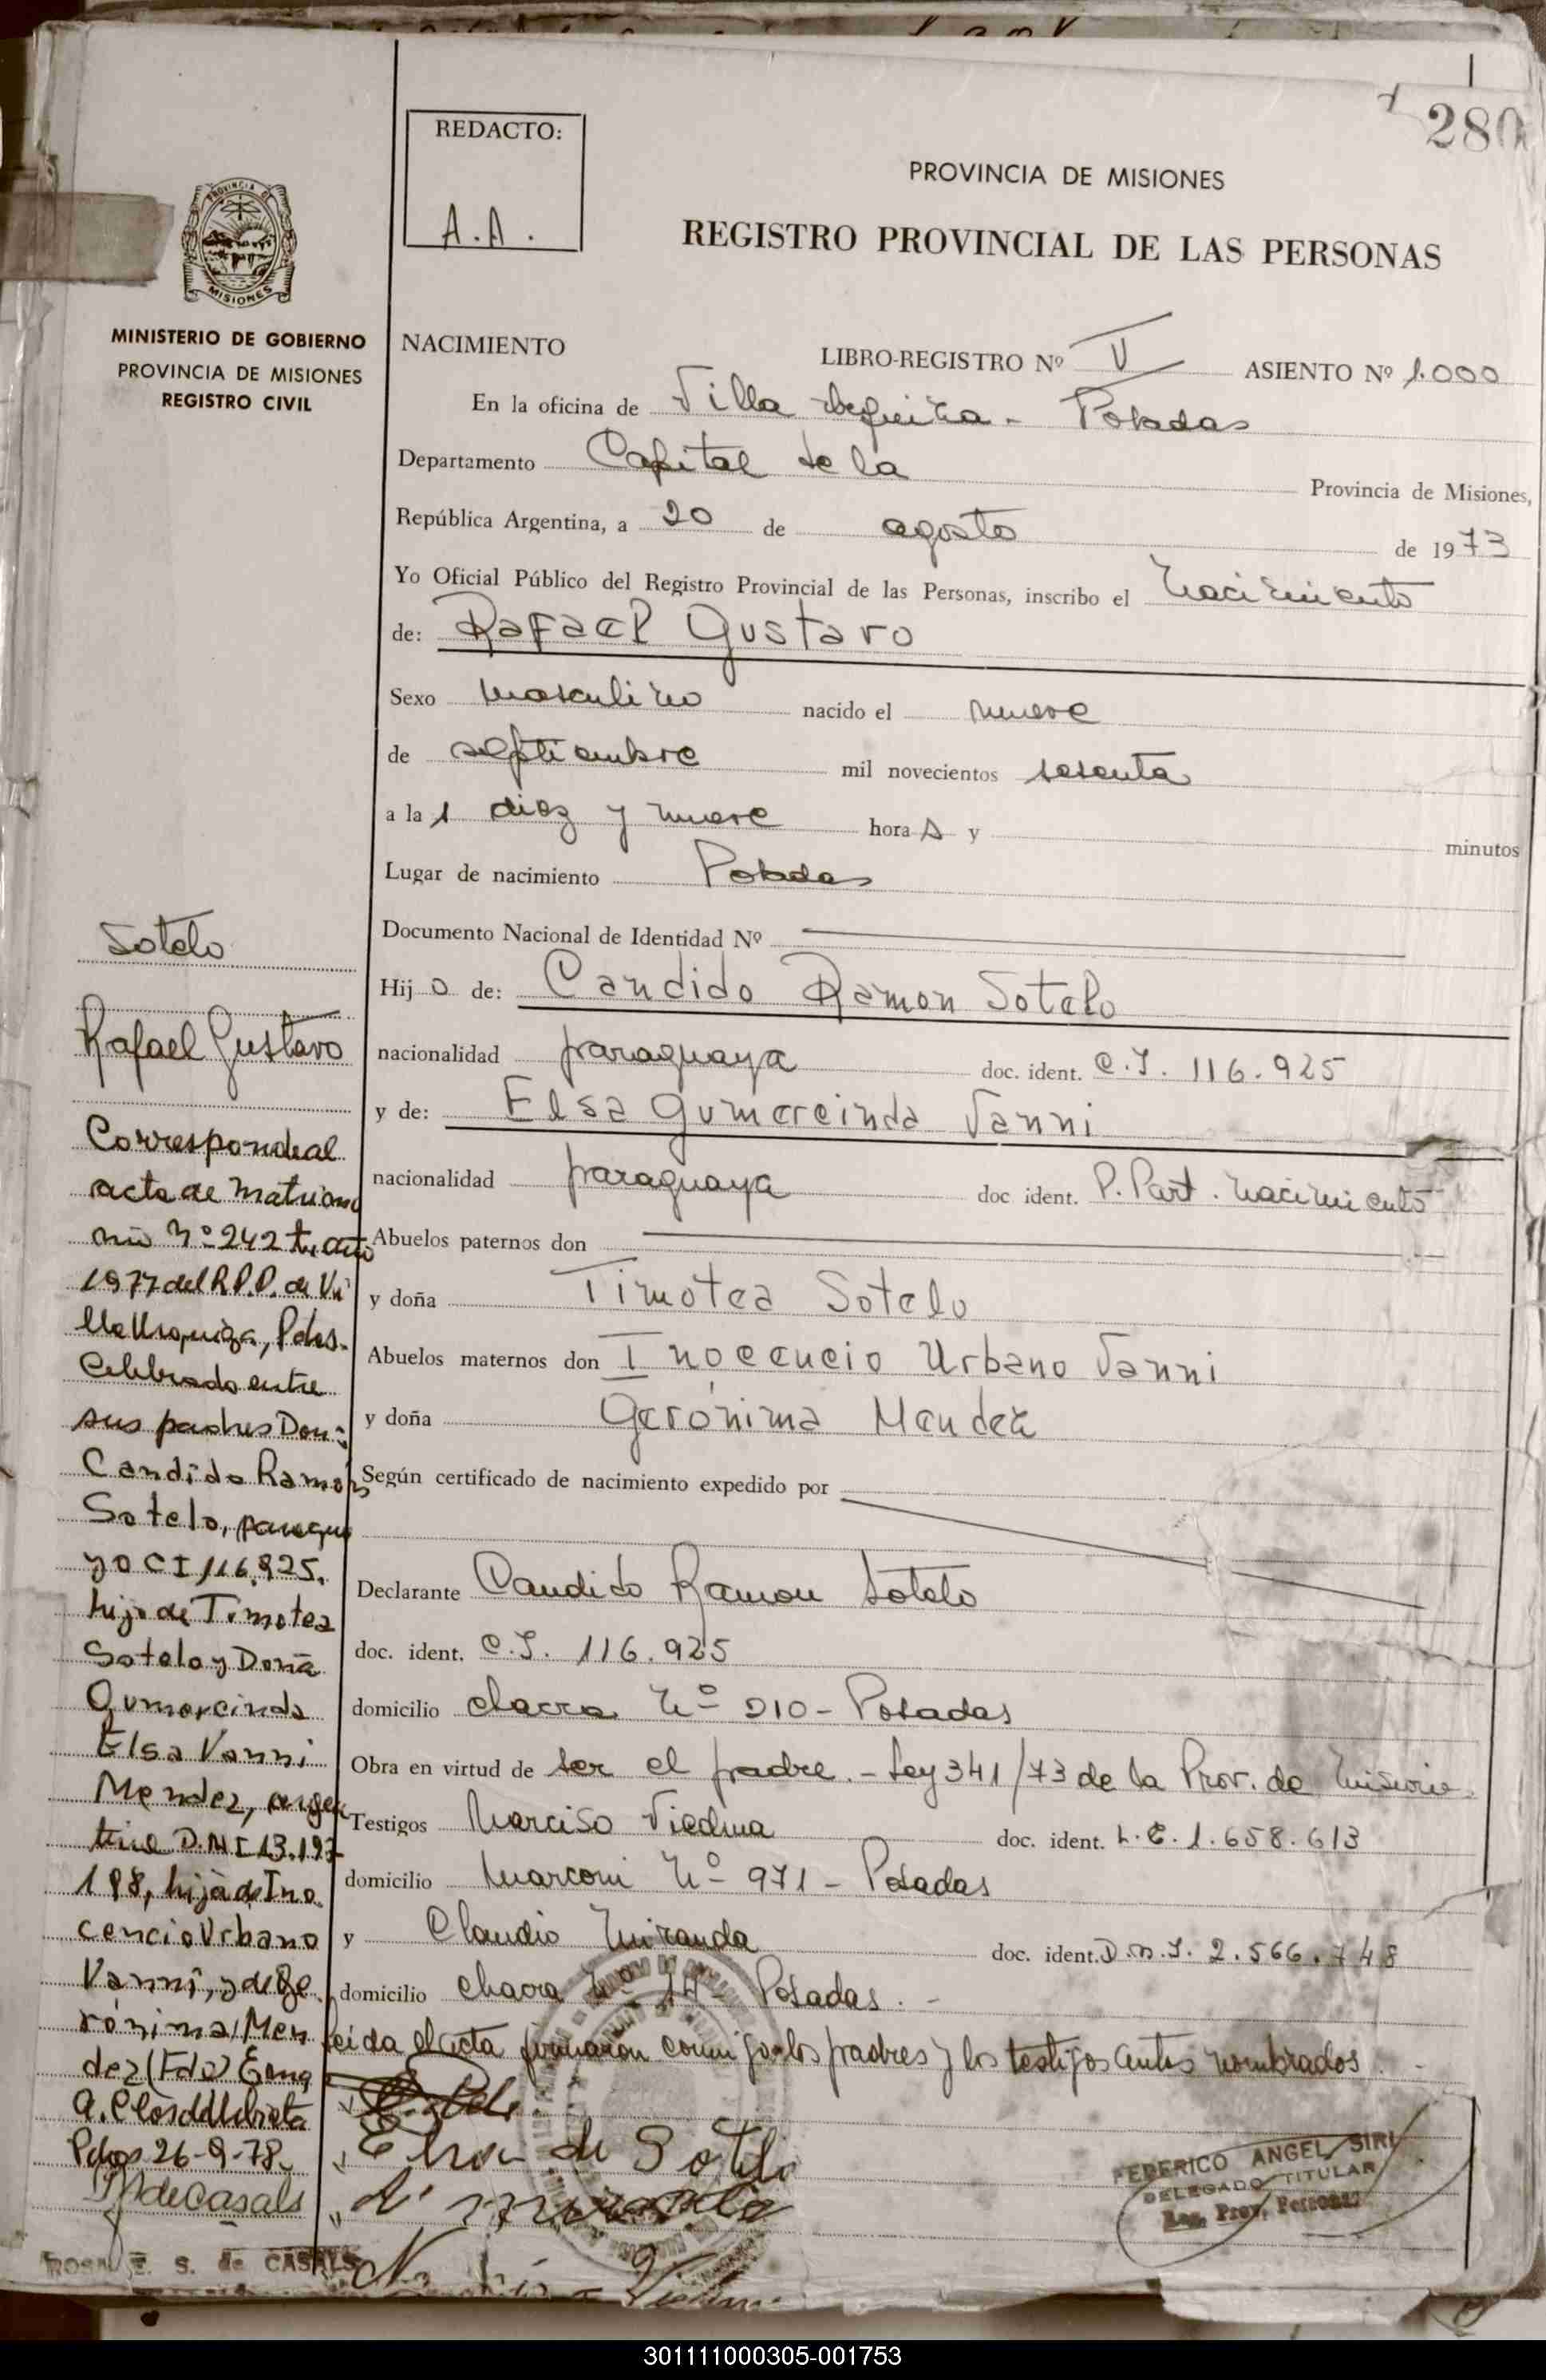 280
REDACTO:
A.A.
PROVINCIA DE MISIONES
REGISTRO PROVINCIAL DE LAS PERSONAS
PROVINCIA DE
MISIONES
MINISTERIO DE GOBIERNO
PROVINCIA DE MISIONES
REGISTRO CIVIL
NACIMIENTO
LIBRO-REGISTRO Nº V ASIENTO Nº 1.000
En la oficina de Villa Urquiza - Posadas
Departamento Capital de la Provincia de Misiones,
República Argentina, a 20 de agosto de 1973
Yo Oficial Público del Registro Provincial de las Personas, inscribo el nacimiento
de: Rafael Gustavo
Sexo masculino nacido el nueve
de septiembre mil novecientos sesenta
a la s diez y nueve hora s y minutos
Lugar de nacimiento Posadas
Documento Nacional de Identidad Nº
Hij o de: Candido Ramon Sotelo
nacionalidad paraguaya doc. ident. C.I. 116.925
y de: Elsa Gumercinda Vanni
nacionalidad paraguaya doc ident. P. Part. nacimiento
Abuelos paternos don
y doña Timotea Sotelo
Abuelos maternos don Inocencio Urbano Vanni
y doña Gerónima Mendez
Según certificado de nacimiento expedido por
Declarante Candido Ramon Sotelo
doc. ident. C.I. 116.925
domicilio chacra Nº 210 - Posadas
Obra en virtud de ser el padre. - Ley 341/73 de la Prov. de Misiones
Testigos Narciso Viedma doc. ident. L.E. 1.658.613
domicilio Marconi Nº 971 - Posadas
y Claudio Miranda doc. ident. D.N.I. 2.566.748
domicilio chacra Nº 14 - Posadas. -
Leida el acta firmaron conmigo los padres y los testigos antes nombrados. -
Elsa de Sotelo
Miranda
Viedma
FEDERICO ANGEL SIRI
DELEGADO TITULAR
Reg. Prov. Personas
Sotelo
Rafael Gustavo
Corresponde al
acta de matrimo
nio Nº 242 año
1977 del R.P.P. de Vi
lla Urquiza, Pdas.
Celebrado entre
sus padres Don:
Candido Ramón
Sotelo, paragua
yo CI 116.925.
hijo de Timotea
Sotelo y Doña
Gumercinda
Elsa Vanni
Mendez, argen
tina D.N.I 13.197
198, hija de Ino
cencio Urbano
Vanni, y de Ge
rónima Men
dez (Fdo)
Pdas 26-9-78.
de Casals
ROSA E. S. de CASALS
301111000305-001753